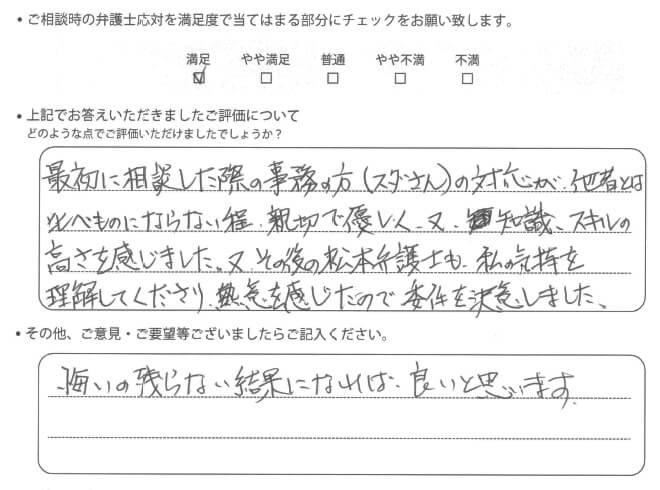 ・ご相談時の弁護士応対を満足度で当てはまる部分にチェックをお願い致します。
満足 やや満足 普通 やや不満 不満
・上記でお答えいただきましたご評価について
どのような点でご評価いただけましたでしょうか？
最初に相談した際の事務の方(スダさん)の対応が、他者とは
比べものにならない程、親切で優しく、又、知識、スキルの
高さを感じました。又、その後の松本弁護士も、私の気持を
理解してくださり、熱意を感じたので委任を決意しました、
・その他、ご意見・ご要望等ございましたらご記入ください。
悔いの残らない結果になれば、良いと思います。